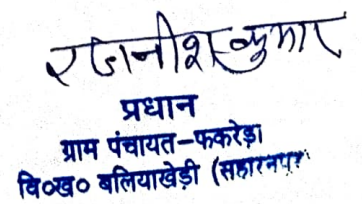 रजनीश कुमार
प्रधान
ग्राम पंचायत–फकरेड़ा
वि०ख० बलियाखेड़ी (सहारनपुर